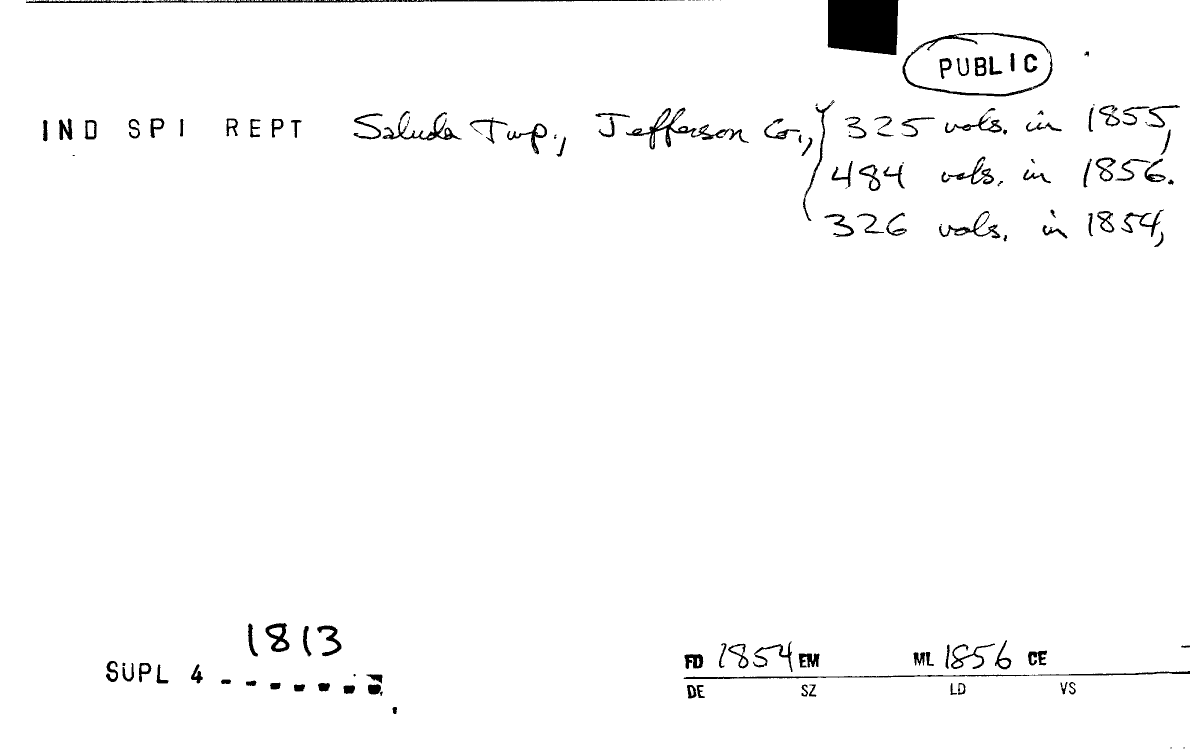 PUBLIC
IND SPI REPT Saluda Twp., Jefferson Co., 325 vols. in 1855,
484 vols. in 1856.
326 vols. in 1854,
1813
SUPL 4
FD 1854 EM ML 1856 CE
DE SZ LD VS